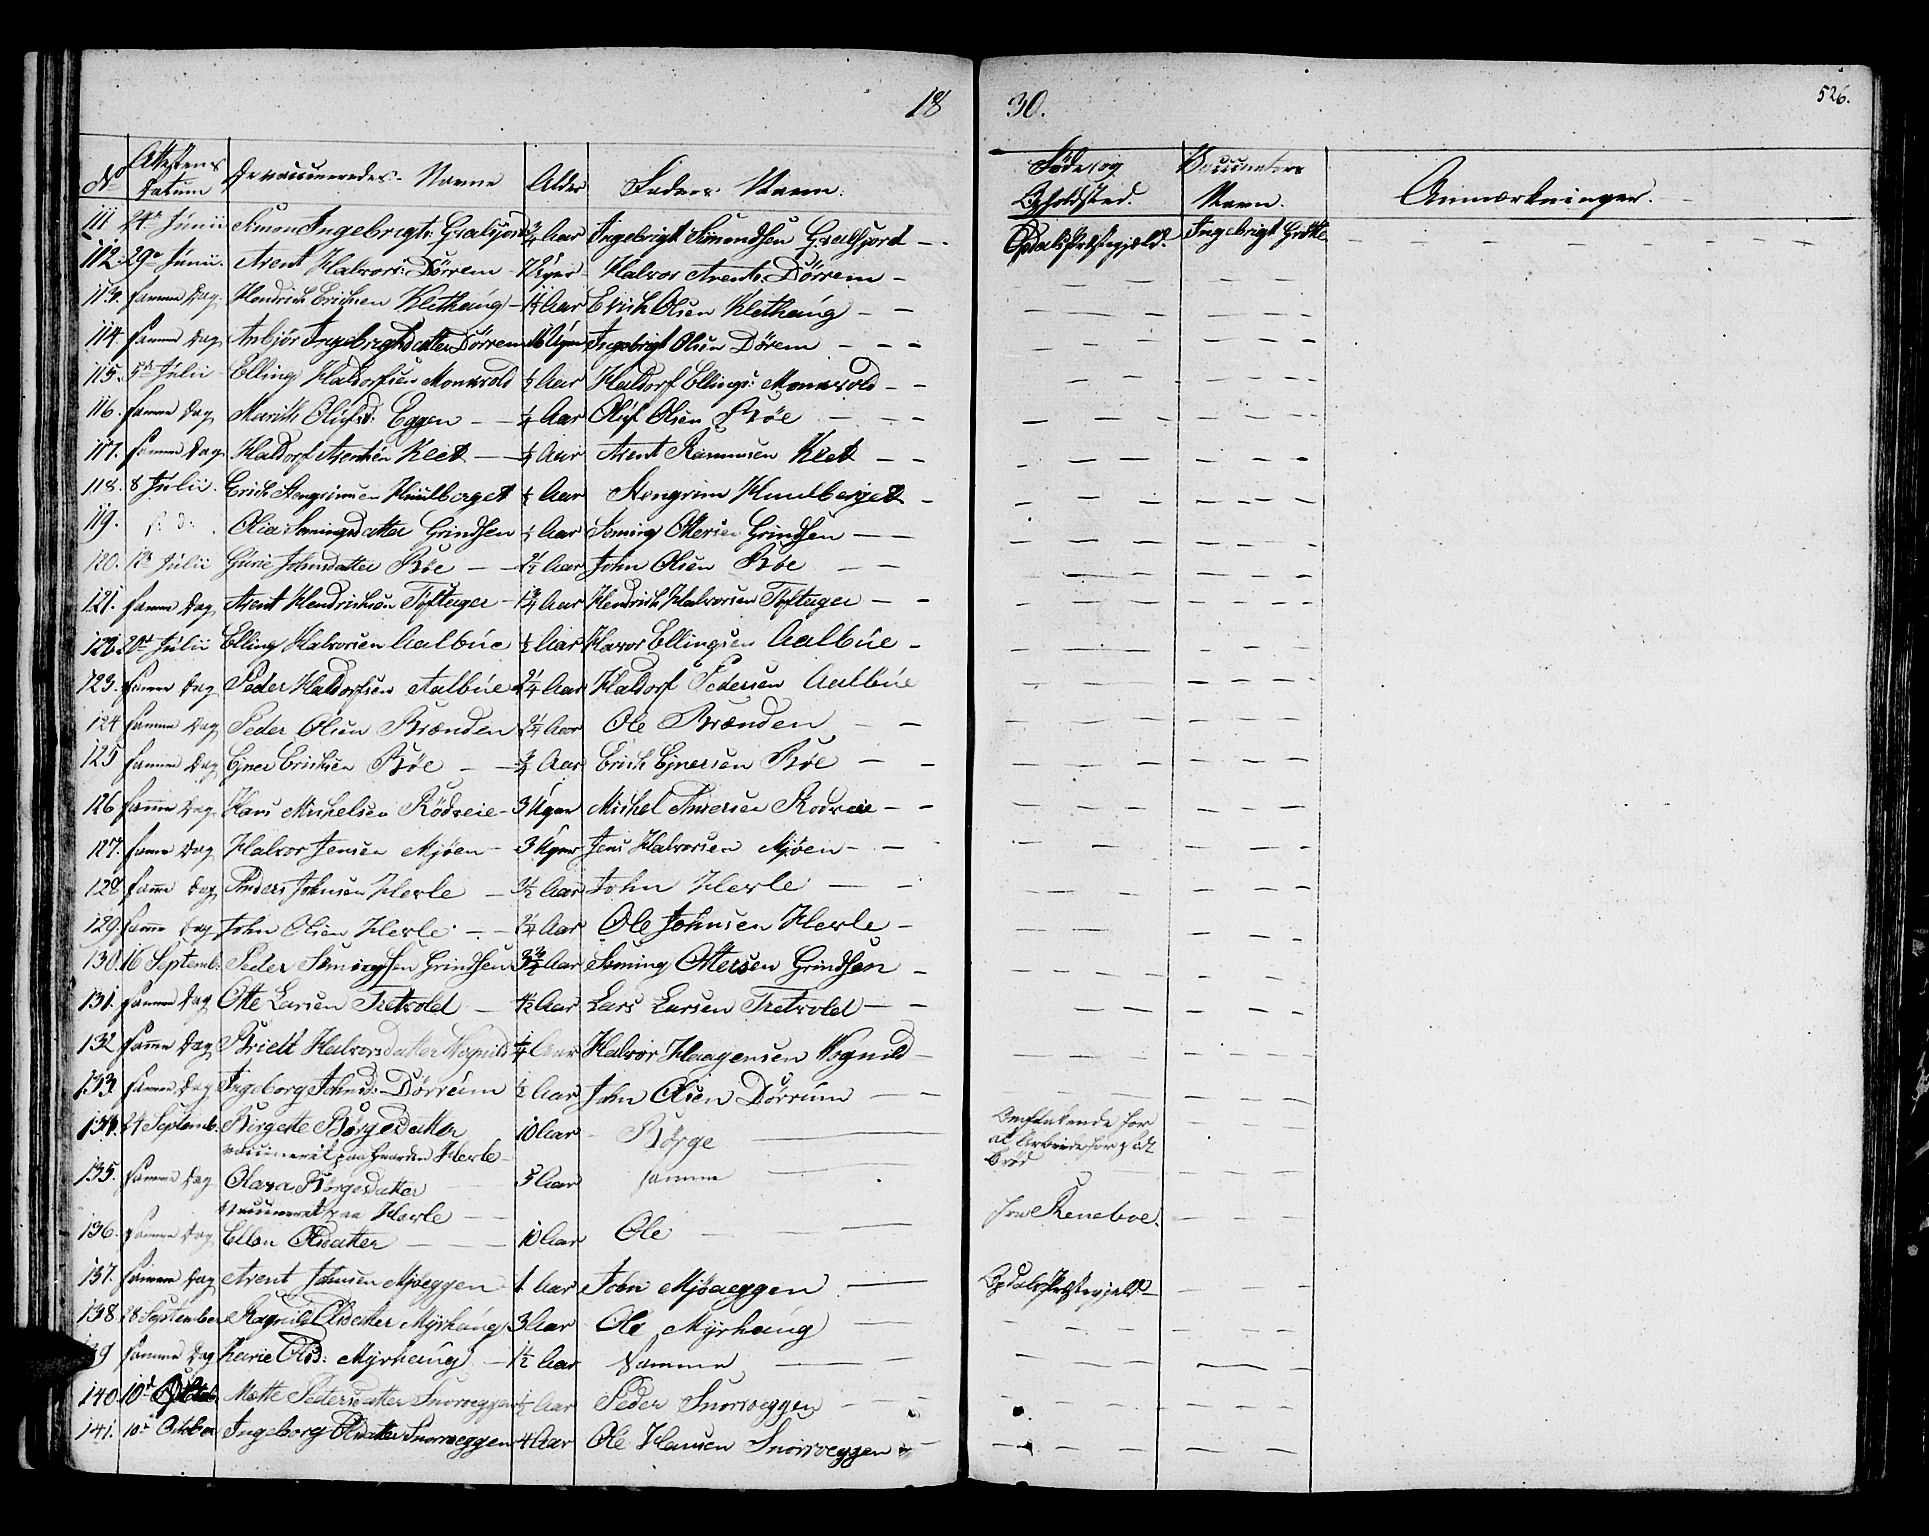 18 30. 526.
No Attestens Datum De vaccineredes Navne Alder Faders Navn. Föde og Opholdsted. Vaccinators Navn. Anmærkninger.
111 24de Junii Simon Ingebrigts: Gravsjord 3/4 Aar Ingebrigt Simondsen Opdals Præstegjæld. Ingebrigt Grötte
112. 29de Junii. Arent Halvors: Dörrem Uger Halvor Arents: Dörrem
113. samme Dag. Hendrich Erichsen Klethaug Aar Erich Olsen Klethaug
114 samme Dag Anbjör Ingebrigtsdatter Dörrem 16 Uger Ingebrigt Olsen Dörem
115. 5te Julii Elling Haldorsen Monsvold 1/2 Aar Haldor Ellings: Monsvold
116. samme Dag Marith Olufsd: Eggen 1/4 Aar Oluf Olsen Böe
117. samme Dag Haldor Arentsen Kleet Aar Arent Rasmusen Kleet
118. 8 Julii. Erich Stengrimsen Hundberget Aar Stengrim Hundberget
119. s: d: Olia Semingsdatter Grindsen 1/2 Aar Seming Ottersen Grindsen
120. Julii Gurie Johnsdatter Böe 2 1/2 Aar John Olsen Böe
121. samme Dag Arent Hendrichsen Töftager 1 3/4 Aar Hendrich Halvorsen Töftager
122. 20de Julii Elling Halvorsen Aalbue 1/2 Aar Havor Ellingsen Aalbue
123. samme Dag Peder Haldorsen Aalbue 2 1/4 Aar Haldor Pedersen Aalbue
124 samme Dag Peder Olsen Brænden 2 1/4 Aar Ole Brænden
125 samme Dag Ejner Erichsen Böe 3/4 Aar Erich Ejnersen Böe
126 samme Dag. Hans Michelsen Rödveie 3 Uger Michel Iversen Rodveie
127. samme Dag Halvor Jensen Mjöen 3 Uger Jens Halvorsen Mjöen
128 samme Dag Anders Johnsen Hevle 3 1/2 Aar John Hevle
129. samme Dag John Olsen Hevle 2 1/4 Aar Ole Johnsen Hevle
130. 16 Septemb. Peder Semingsen Grindsen Aar Seming Ottersen Grindsen
131. samme Dag Otte Larsen Tretvold 1/2 Aar Lars Larsen Tretvold
132 samme Dag Briett Halvorsdatter Vognild 1/4 Aar Halvor Haagensen Vognild
133. samme Dag Ingeborg Johnsd: Dörrum 1/2 Aar John Olsen Dörrum
134. 24 Septemb. Birgette Börgesdatter 10 Aar Börge Omflakkende for
vaccineret paa Gaarden Hevle at Arbeide for sit Bröd
135. samme Dag Olava Börgesdatter 5 Aar samme
vaccineret paa Hevle
136. samme Dag Ellen Olsdatter 10 Aar Ole fra Reneboe.
137. samme Dag Arent Johnsen Mjöeggen 1 Aar John Mjöaeggen Opdals Præstegjeld
138 28 September Ragnild Olsdatter Myrhaug 3 Aar Ole Myrhaug
139 samme Dag Karie Olsd: Myrhaug 1 1/2 Aar Samme
140. 10de October Mette Pedersdatter Snorveggen 1/2 Aar Peder Snorveggen
141. 10de October Ingeborg Olsdatter Snorroeggen 4 Aar Ole Hansen Snorroeggen